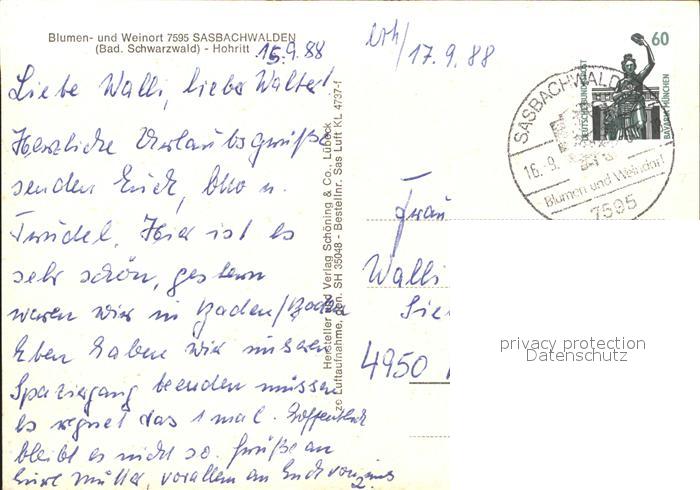 Blumen- und Weinort 7595 SASBACHWALDEN
(Bad. Schwarzwald) - Hohritt
15.9.88
Liebe Walli, lieber Walter!
Herzliche Urlaubsgrüße
senden Euch, Otto u.
Trudel. Hier ist es
sehr schön, gestern
waren wir in Baden/Baden
Eben haben wir unseren
Spaziergang beenden müssen
es regnet das 1 mal. Hoffentlich
bleibt es nicht so. Grüße an
Eure Mutter, vorallem an Euch von uns
Hersteller Verlag Schöning & Co., Lübeck
Luftaufnahme, SH 35048 - Bestellnr. Sas Luft KL 4737-f
17.9.88
60
DEUTSCHE BUNDESPOST
BAVARIA MÜNCHEN
SASBACHWALDEN
16.-9.
Blumen und Weindorf
7595
Frau
Walli
4950
privacy protection
Datenschutz